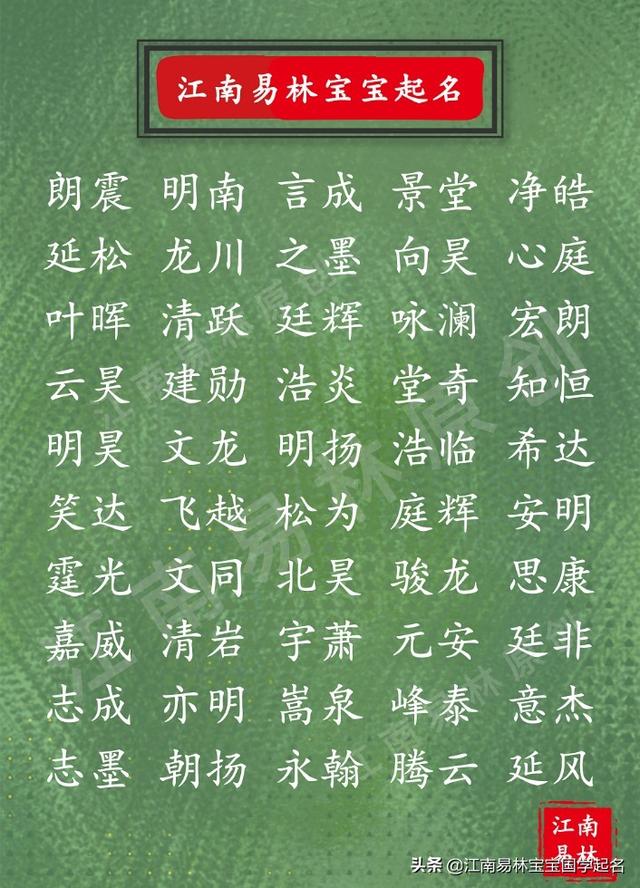 江南易林宝宝起名
朗震 明南 言成 景堂 净皓
延松 龙川 之墨 向昊 心庭
叶晖 清跃 廷辉 咏澜 宏朗
云昊 建勋 浩炎 堂奇 知恒
明昊 文龙 明扬 浩临 希达
笑达 飞越 松为 庭辉 安明
霆光 文同 北昊 骏龙 思康
嘉威 清岩 宇萧 元安 廷非
志成 亦明 嵩泉 峰泰 意杰
志墨 朝扬 永翰 腾云 延风
江南易林原创
江南易林原创
江南易林原创
江南
易林
头条 @江南易林宝宝国学起名